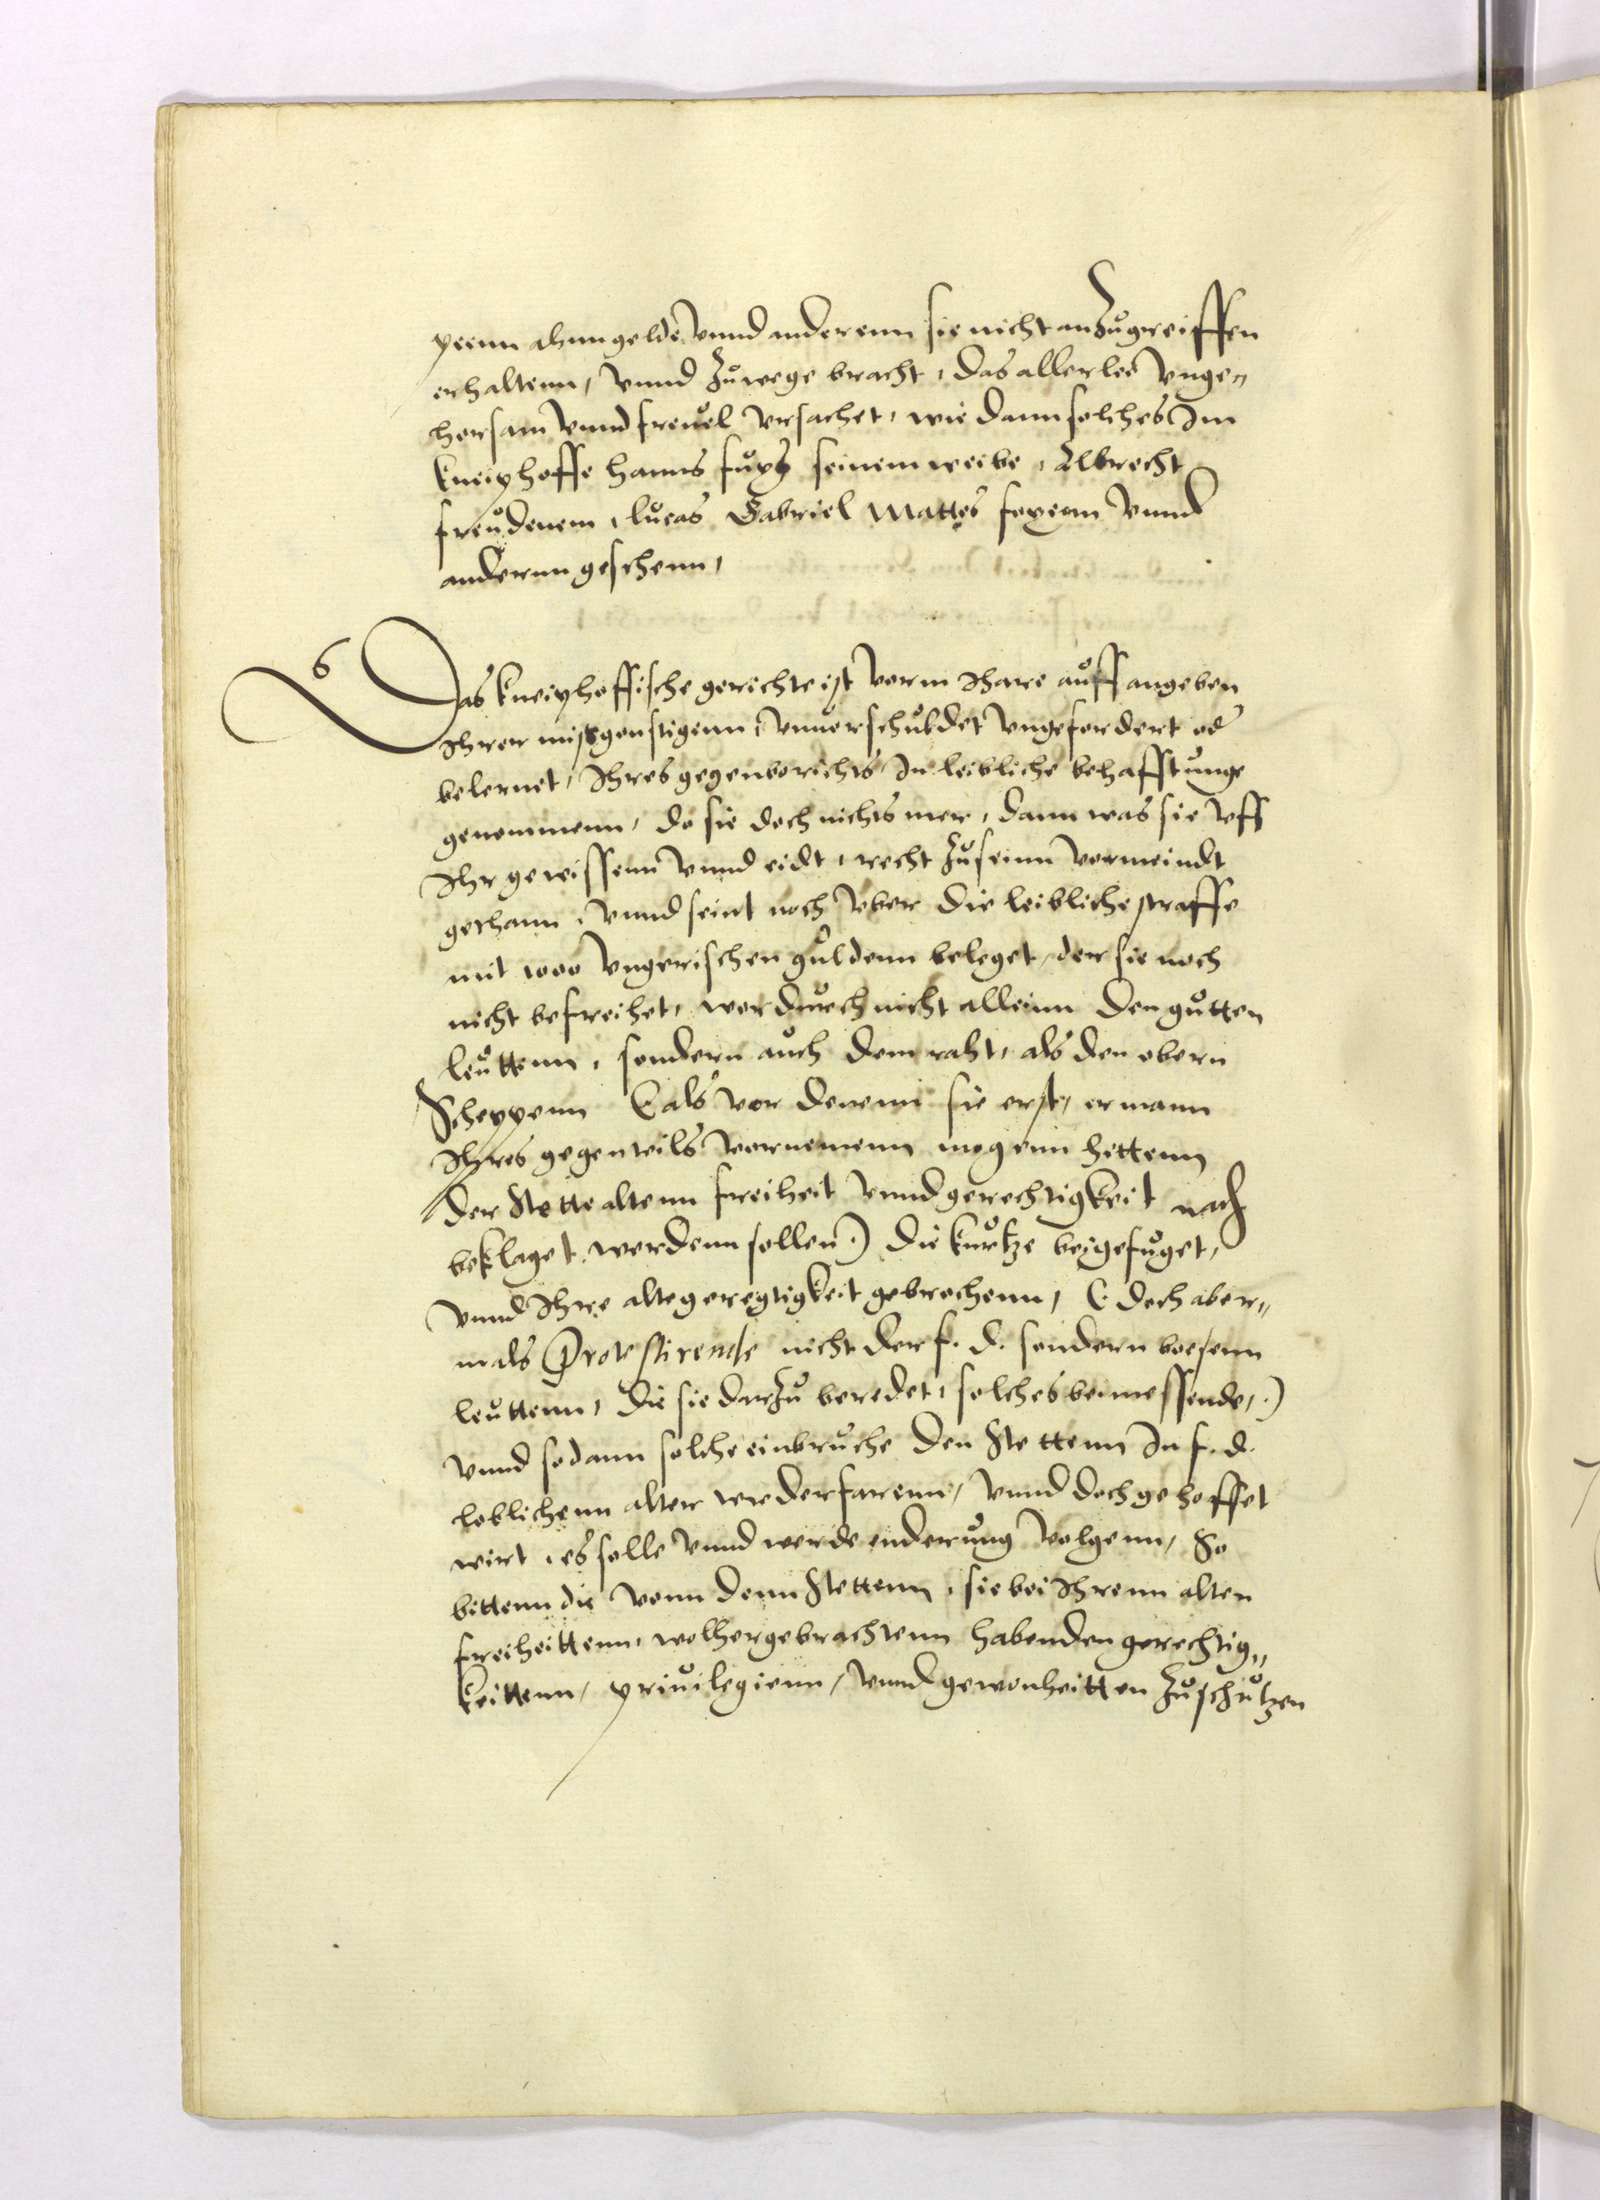 peenn ahnn gelde vnnd anderenn sie nicht anZugreiffen
erhaltenn, vnnd Zuwege bracht, das allerlei vnge„
horsam vnnd freuel vrsachet, wie dann solches Im
kneiphoffe hanns seinem weibe, Albrecht
freudenem, lucas Gabriel Mattes vnnd
anderun geschenn,
6 Das kneiphoffische gerichte ist vorm Ihare auff angeben
Ihrer misgonstigenn, vnuerschuldet vngefordert od
belernet, Ihres gegenberichts In leibliche behafftunge
genommenn, do sie doch nichts mer, dann was sie vff
Ihr gewissenn vnnd eidt, recht Zuseinn vermeindt
gethann, vnnd seint noch vber die leibliche straffe
mit 1000 vngerischen guldenn beleget, der sie noch
nicht befreihet, wordurch nicht alleinn den gutten
leuttenn, sondern auch dem raht, als den obern
Scheppenn (als vor denenn sie erst, er mann
Ihres gegenteils vornemenn mogenn hettenn
der Stette altenn freiheit vnnd gerechtigkeit nach
beklaget werdenn sollen) die kurtze beigefuget,
vnnd Ihre alte geregtigkeit gebrochenn, (doch aber„
mals Protestirende nicht der f. d. sondern boesenn
leuttenn, die sie darzu beredet, solches beimessende,)
vnnd sodann solche einbruche den Stettenn In f. d.
loblichenn alter wiederfarenn, vnnd doch gehoffet
wirt, es solle vnnd werde enderung volgenn, So
bittenn die vonn denn Stettenn, sie bei Ihrenn alten
freiheittenn, wolhergebrachtenn habenden gerechtig„
keittenn, priuilegienn, vnnd gewonheitten Zuschutzen